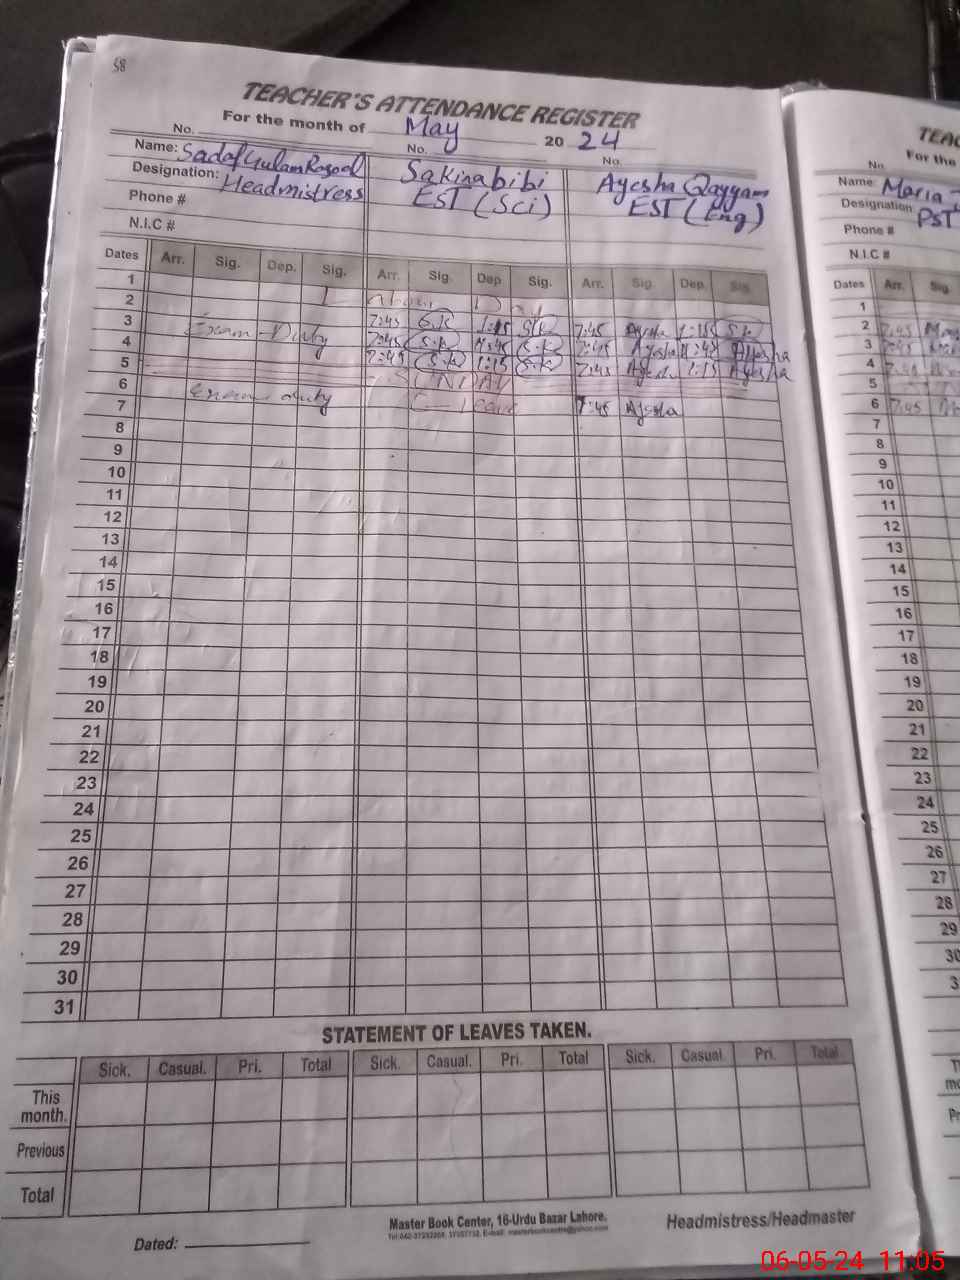 58
TEACHER'S ATTENDANCE REGISTER
For the month of May 2024
No. No. No.
Name: Sadaf Gulam Rasool Sakina bibi Ayesha Qayyam
Designation: Headmistress EST (Sci) EST (Eng)
Phone #
N.I.C #
Dates Arr. Sig. Dep. Sig. Arr. Sig. Dep Sig. Arr. Sig. Dep. Sig.
1 Labour Day
2 Exam Duty 7:45 S.K 1:15 S.K 7:45 Ayesha 1:15
3 7:45 S.K S.K 7:45 Ayesha Ayesha
4 7:45 S.K 1:15 S.K 7:45 Ayesha 1:15 Ayesha
5 SUNDAY
6 Exam duty C-Leave 7:45 Ayesha
7
8
9
10
11
12
13
14
15
16
17
18
19
20
21
22
23
24
25
26
27
28
29
30
31
STATEMENT OF LEAVES TAKEN.
Sick. Casual. Pri. Total Sick. Casual. Pri. Total Sick. Casual. Pri. Total
This month.
Previous
Total
Dated:
Master Book Center, 16-Urdu Bazar Lahore.
Headmistress/Headmaster
TEAC
For the
No.
Name: Maria
Designation PST
Phone #
N.I.C #
Dates Arr. Sig
1
2 7:45
3 7:45
4 7:45
5
6 7:45
7
8
9
10
11
12
13
14
15
16
17
18
19
20
21
22
23
24
25
26
27
28
29
30
3
06-05-24 11:05